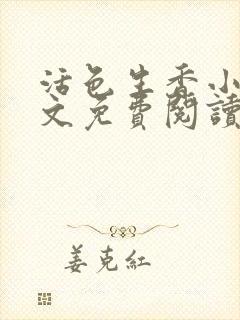 活色生香小
文免費閱讀
姜克紅